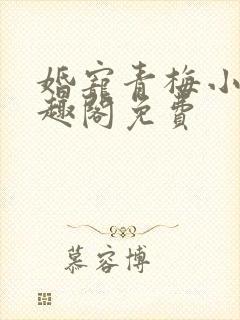 婚宠青梅小
趣阁免費
慕容博